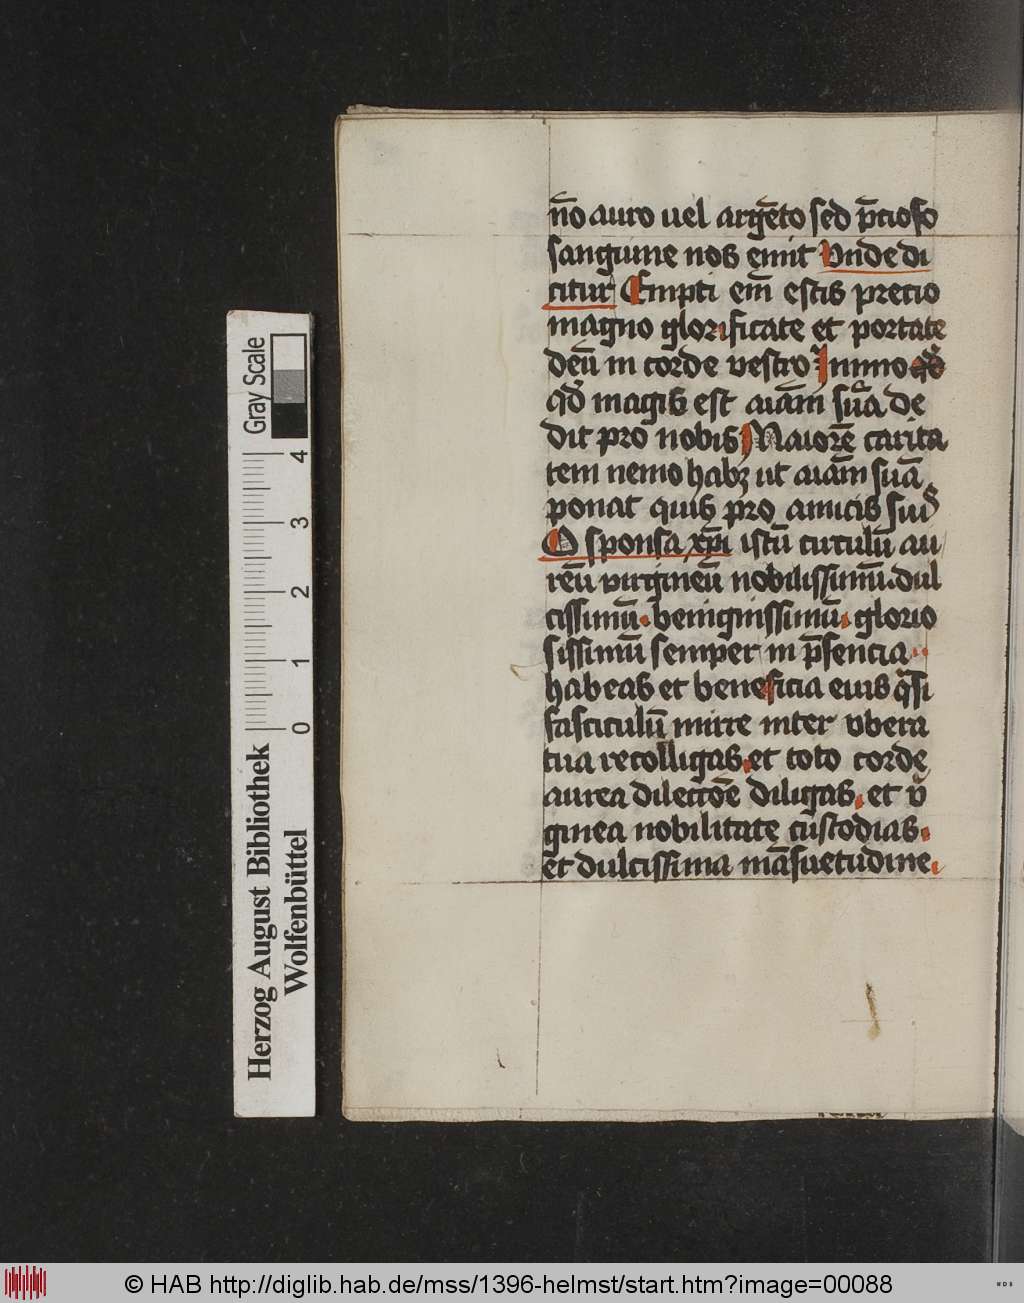 n̄o auro uel argēto sed p̄cioso
sanguine nos emit Vnde di
citur Empti em̄ estis precio
magno glorificate et portate
deū in corde vestro Immo
qd̛ magis est aīam suā de
dit pro nobis Maiorē carita
tem nemo habꝫ ut aīam suā
ponat quis pro amicis suis
O sponsa xp̄i istū circulū au
reū virgineū nobilissimū dul
cissimū benignissimū glorio
sissimū semper in p̄sencia
habeas et beneficia euis q̄si
fasciculū mirre inter vbera
tua recolligas et toto corde
aurea dilectōe diligas et v̄
ginea nobilitate custodias
et dulcissima māsuetudine
Gray Scale
4
3
2
1
0
Herzog August Bibliothek
Wolfenbüttel
© HAB http://diglib.hab.de/mss/1396-helmst/start.htm?image=00088